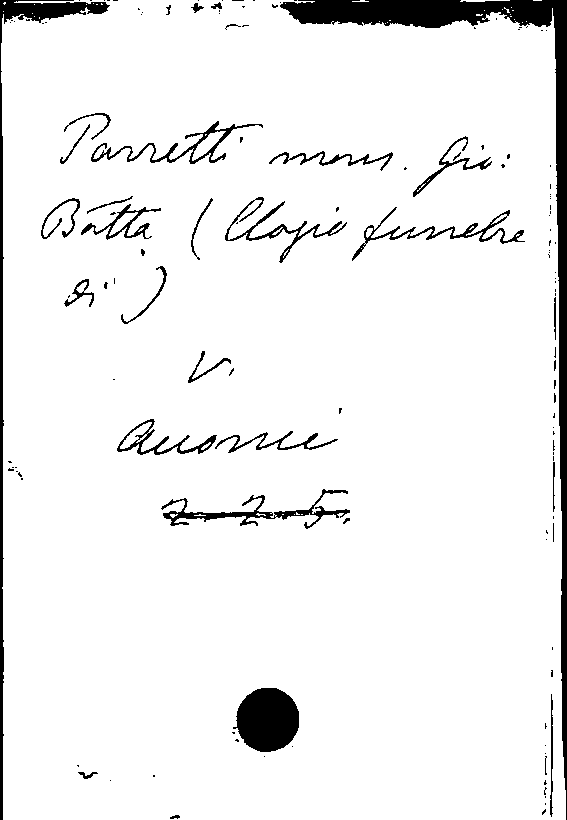 Parretti mons. Gio:
Batta (Elogio funebre
di)
V.
Anonimi
2. 2. 5.